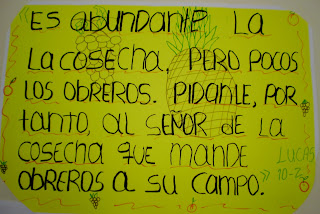 ES ABUNDANTE LA
LA COSECHA, PERO POCOS
LOS OBREROS. PIDANLE, POR
TANTO, AL SEÑOR DE LA
COSECHA QUE MANDE
OBREROS A SU CAMPO.
LUCAS
10-2